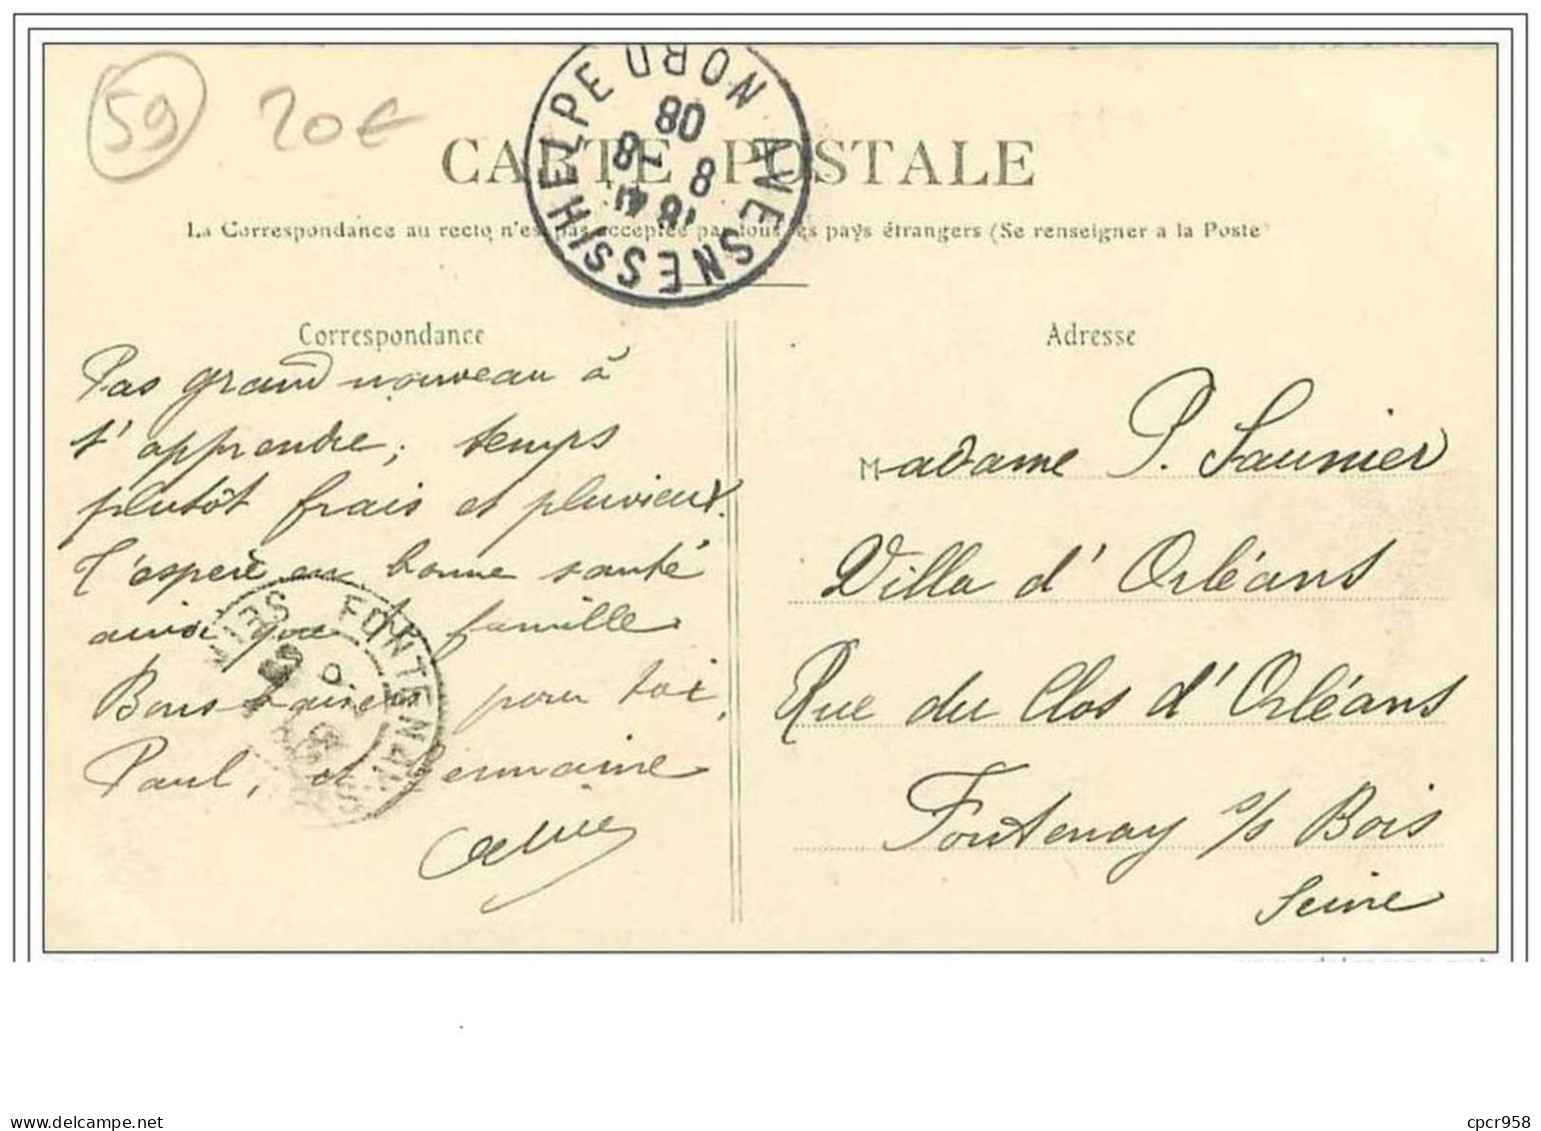 59
20€
AVESNES S/ HELPE NORD
18 41
8 - 8
08
CARTE POSTALE
La Correspondance au recto n'est pas acceptée par tous les pays étrangers (Se renseigner a la Poste
Correspondance
Pas grand nouveau à
t'apprendre; temps
plutôt frais et pluvieux.
T'espère en bonne santé
ainsi que ta famille
Bons baisers pour toi,
Paul, et Germaine
FONTENAY S
Adresse
Madame P. Saunier
Villa d'Orléans
Rue du Clos d'Orléans
Fontenay s/s Bois
Seine
www.delcampe.net
cpcr958